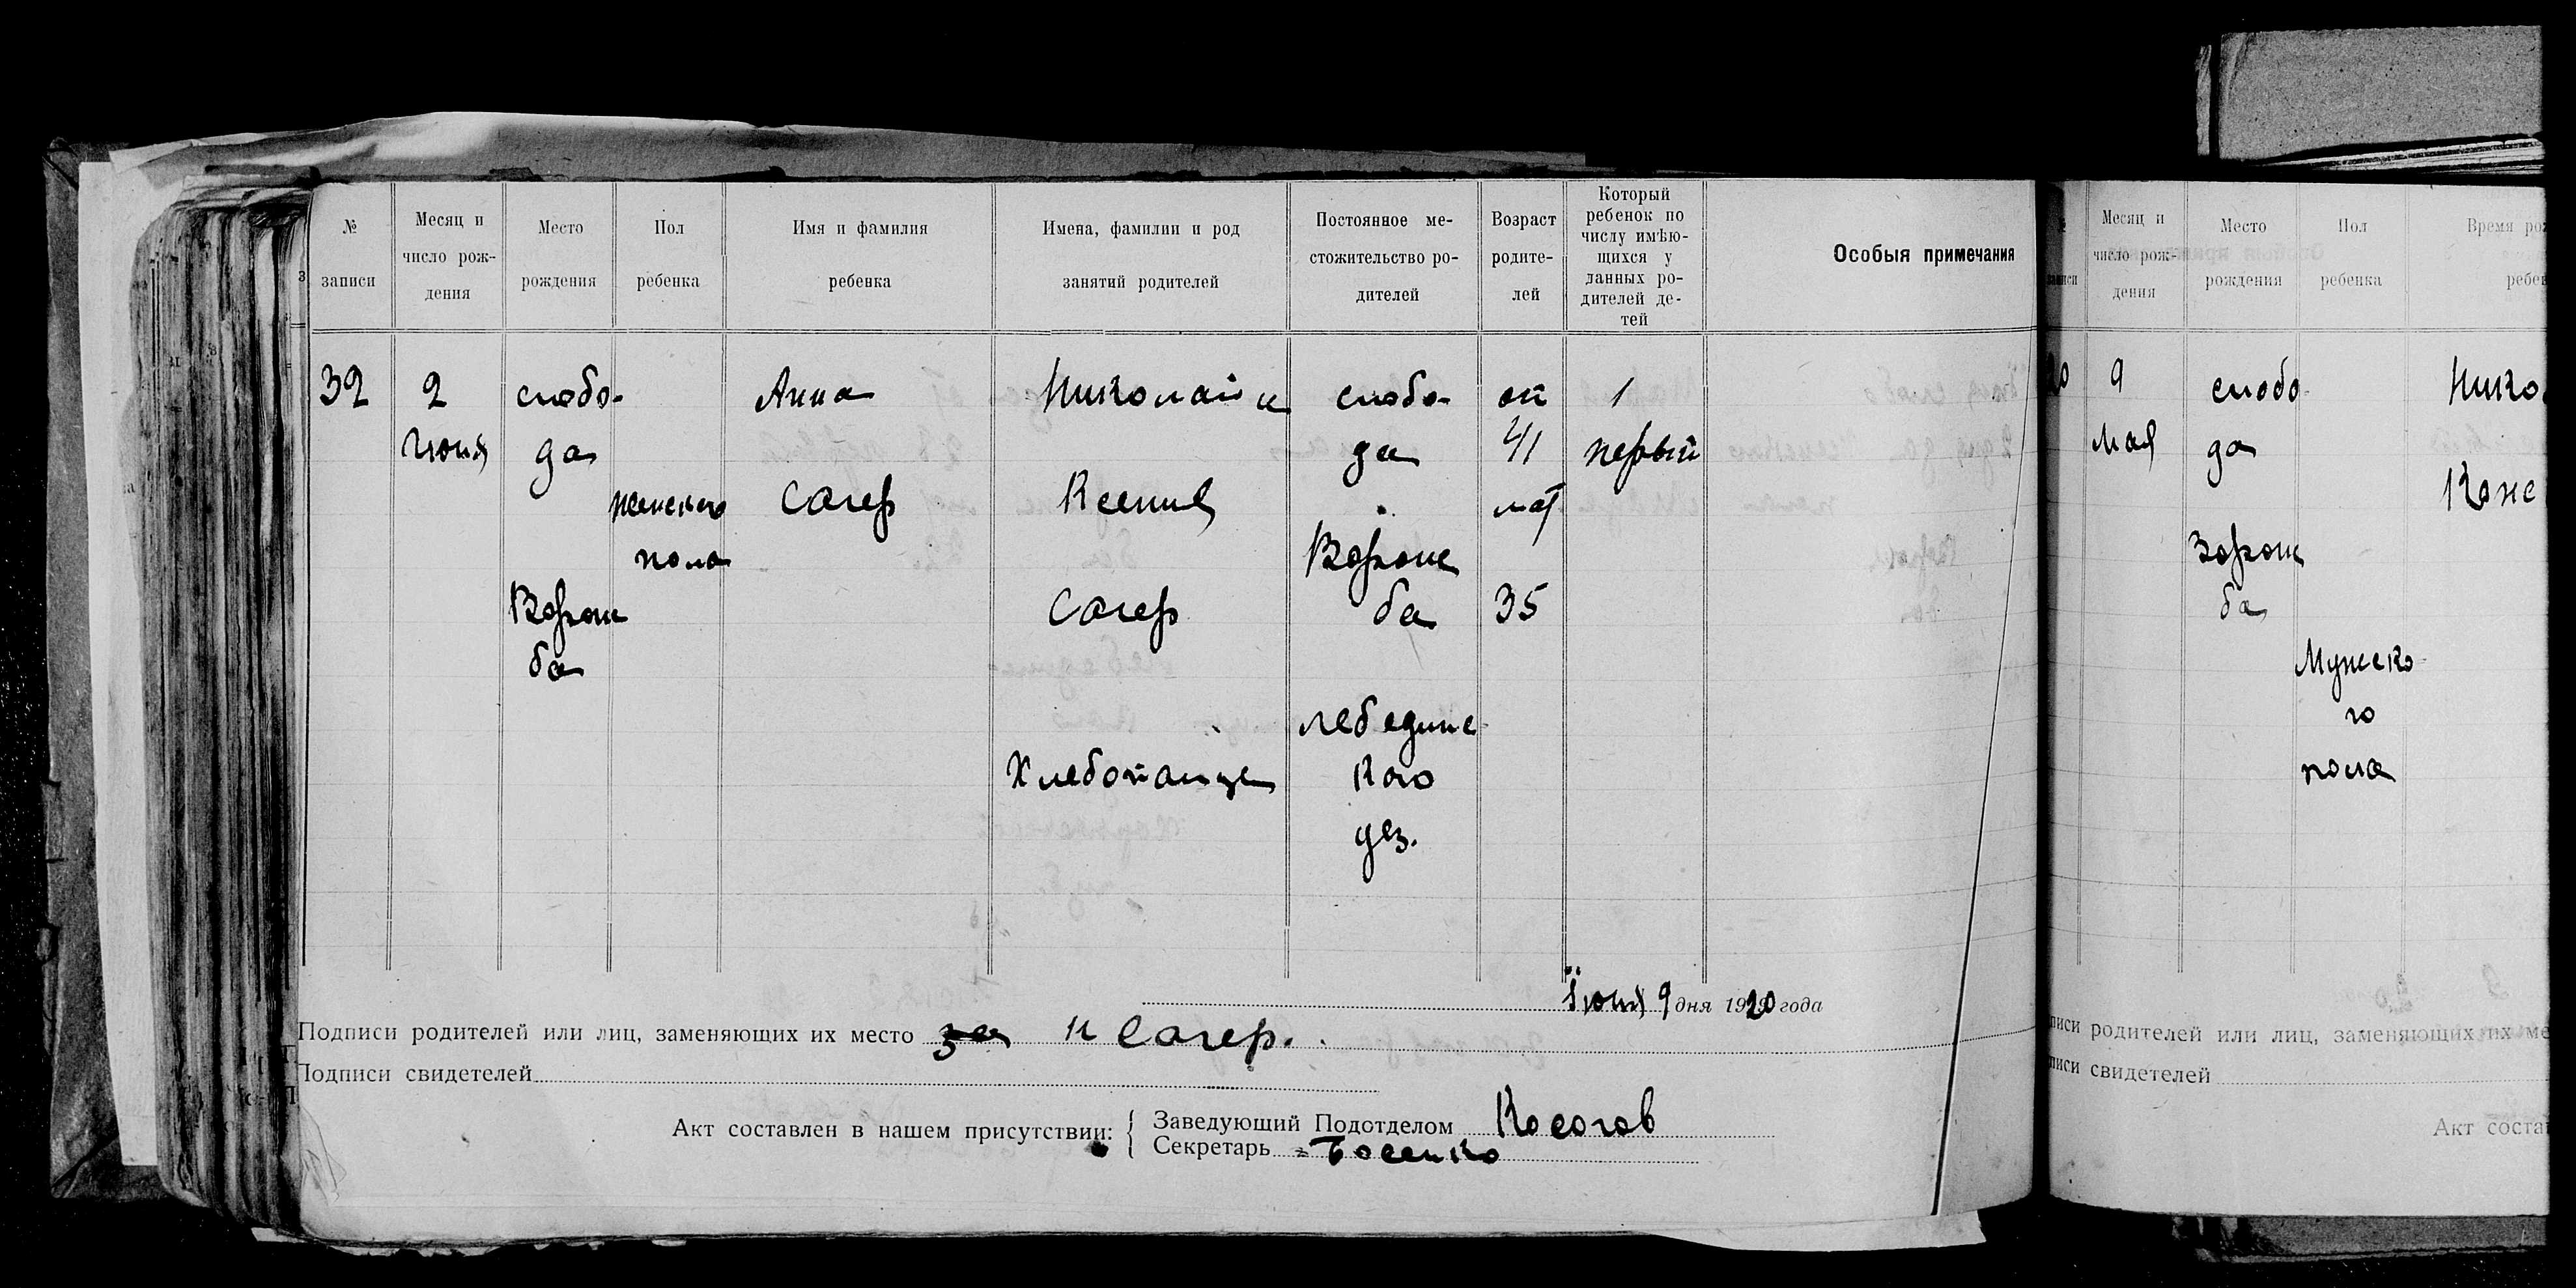 № записи
Месяц и число рождения
Место рождения
Пол ребенка
Имя и фамилия ребенка
Имена, фамилии и род занятий родителей
Постоянное местожительство родителей
Возраст родителей
Который ребенок по числу имѣющихся у данных родителей детей
Особыя примечания
32
2
Июня
слобо-
да
Ворож
ба
женского
пола
Анна
Сагер
Николай и
Ксения
Сагер
Хлебопашцы
слобо-
да
Ворож
ба
Лебединс-
кого
уез.
от
41
мат
35
1
первый
Июня 9 дня 1920 года
Подписи родителей или лиц, заменяющих их место за Н Сагер.
Подписи свидетелей
Акт составлен в нашем присутствии:
Заведующий Подотделом Косогов
Секретарь Босенко
Месяц и число рождения
Место рождения
Пол ребенка
Время
9
мая
слобо-
да
Ворож
ба
Мужско-
го
пола
Нико
писи родителей или лиц, заменяющих их ме
писи свидетелей
Акт соста